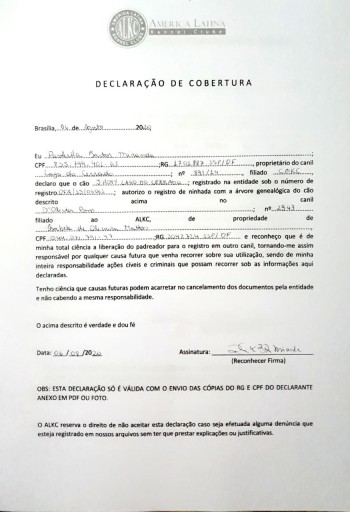 AMERICA LATINA
Kennel Clube
DECLARAÇÃO DE COBERTURA
Brasília, 04 de Agosto 2020
Eu
CPF ;RG , proprietário do canil
; nº , filiado
declaro que o cão ; registrado na entidade sob o número de
registro ; autorizo o registro de ninhada com a árvore genealógica do cão
descrito acima no canil
; nº 2943
filiado ao ALKC, de propriedade de
CPF ;RG e reconheço que é de
minha total ciência a liberação do padreador para o registro em outro canil, tornando-me assim
responsável por qualquer causa futura que venha recorrer sobre sua utilização, sendo de minha
inteira responsabilidade ações cíveis e criminais que possam recorrer sob as informações aqui
declaradas.
Tenho ciência que causas futuras podem acarretar no cancelamento dos documentos pela entidade
e não cabendo a mesma responsabilidade.
O acima descrito é verdade e dou fé
Data: 04 / 08 / 2020 Assinatura:
(Reconhecer Firma)
OBS: ESTA DECLARAÇÃO SÓ É VÁLIDA COM O ENVIO DAS CÓPIAS DO RG E CPF DO DECLARANTE
ANEXO EM PDF OU FOTO.
O ALKC reserva o direito de não aceitar esta declaração caso seja efetuada alguma denúncia que
esteja registrado em nossos arquivos sem ter que prestar explicações ou justificativas.